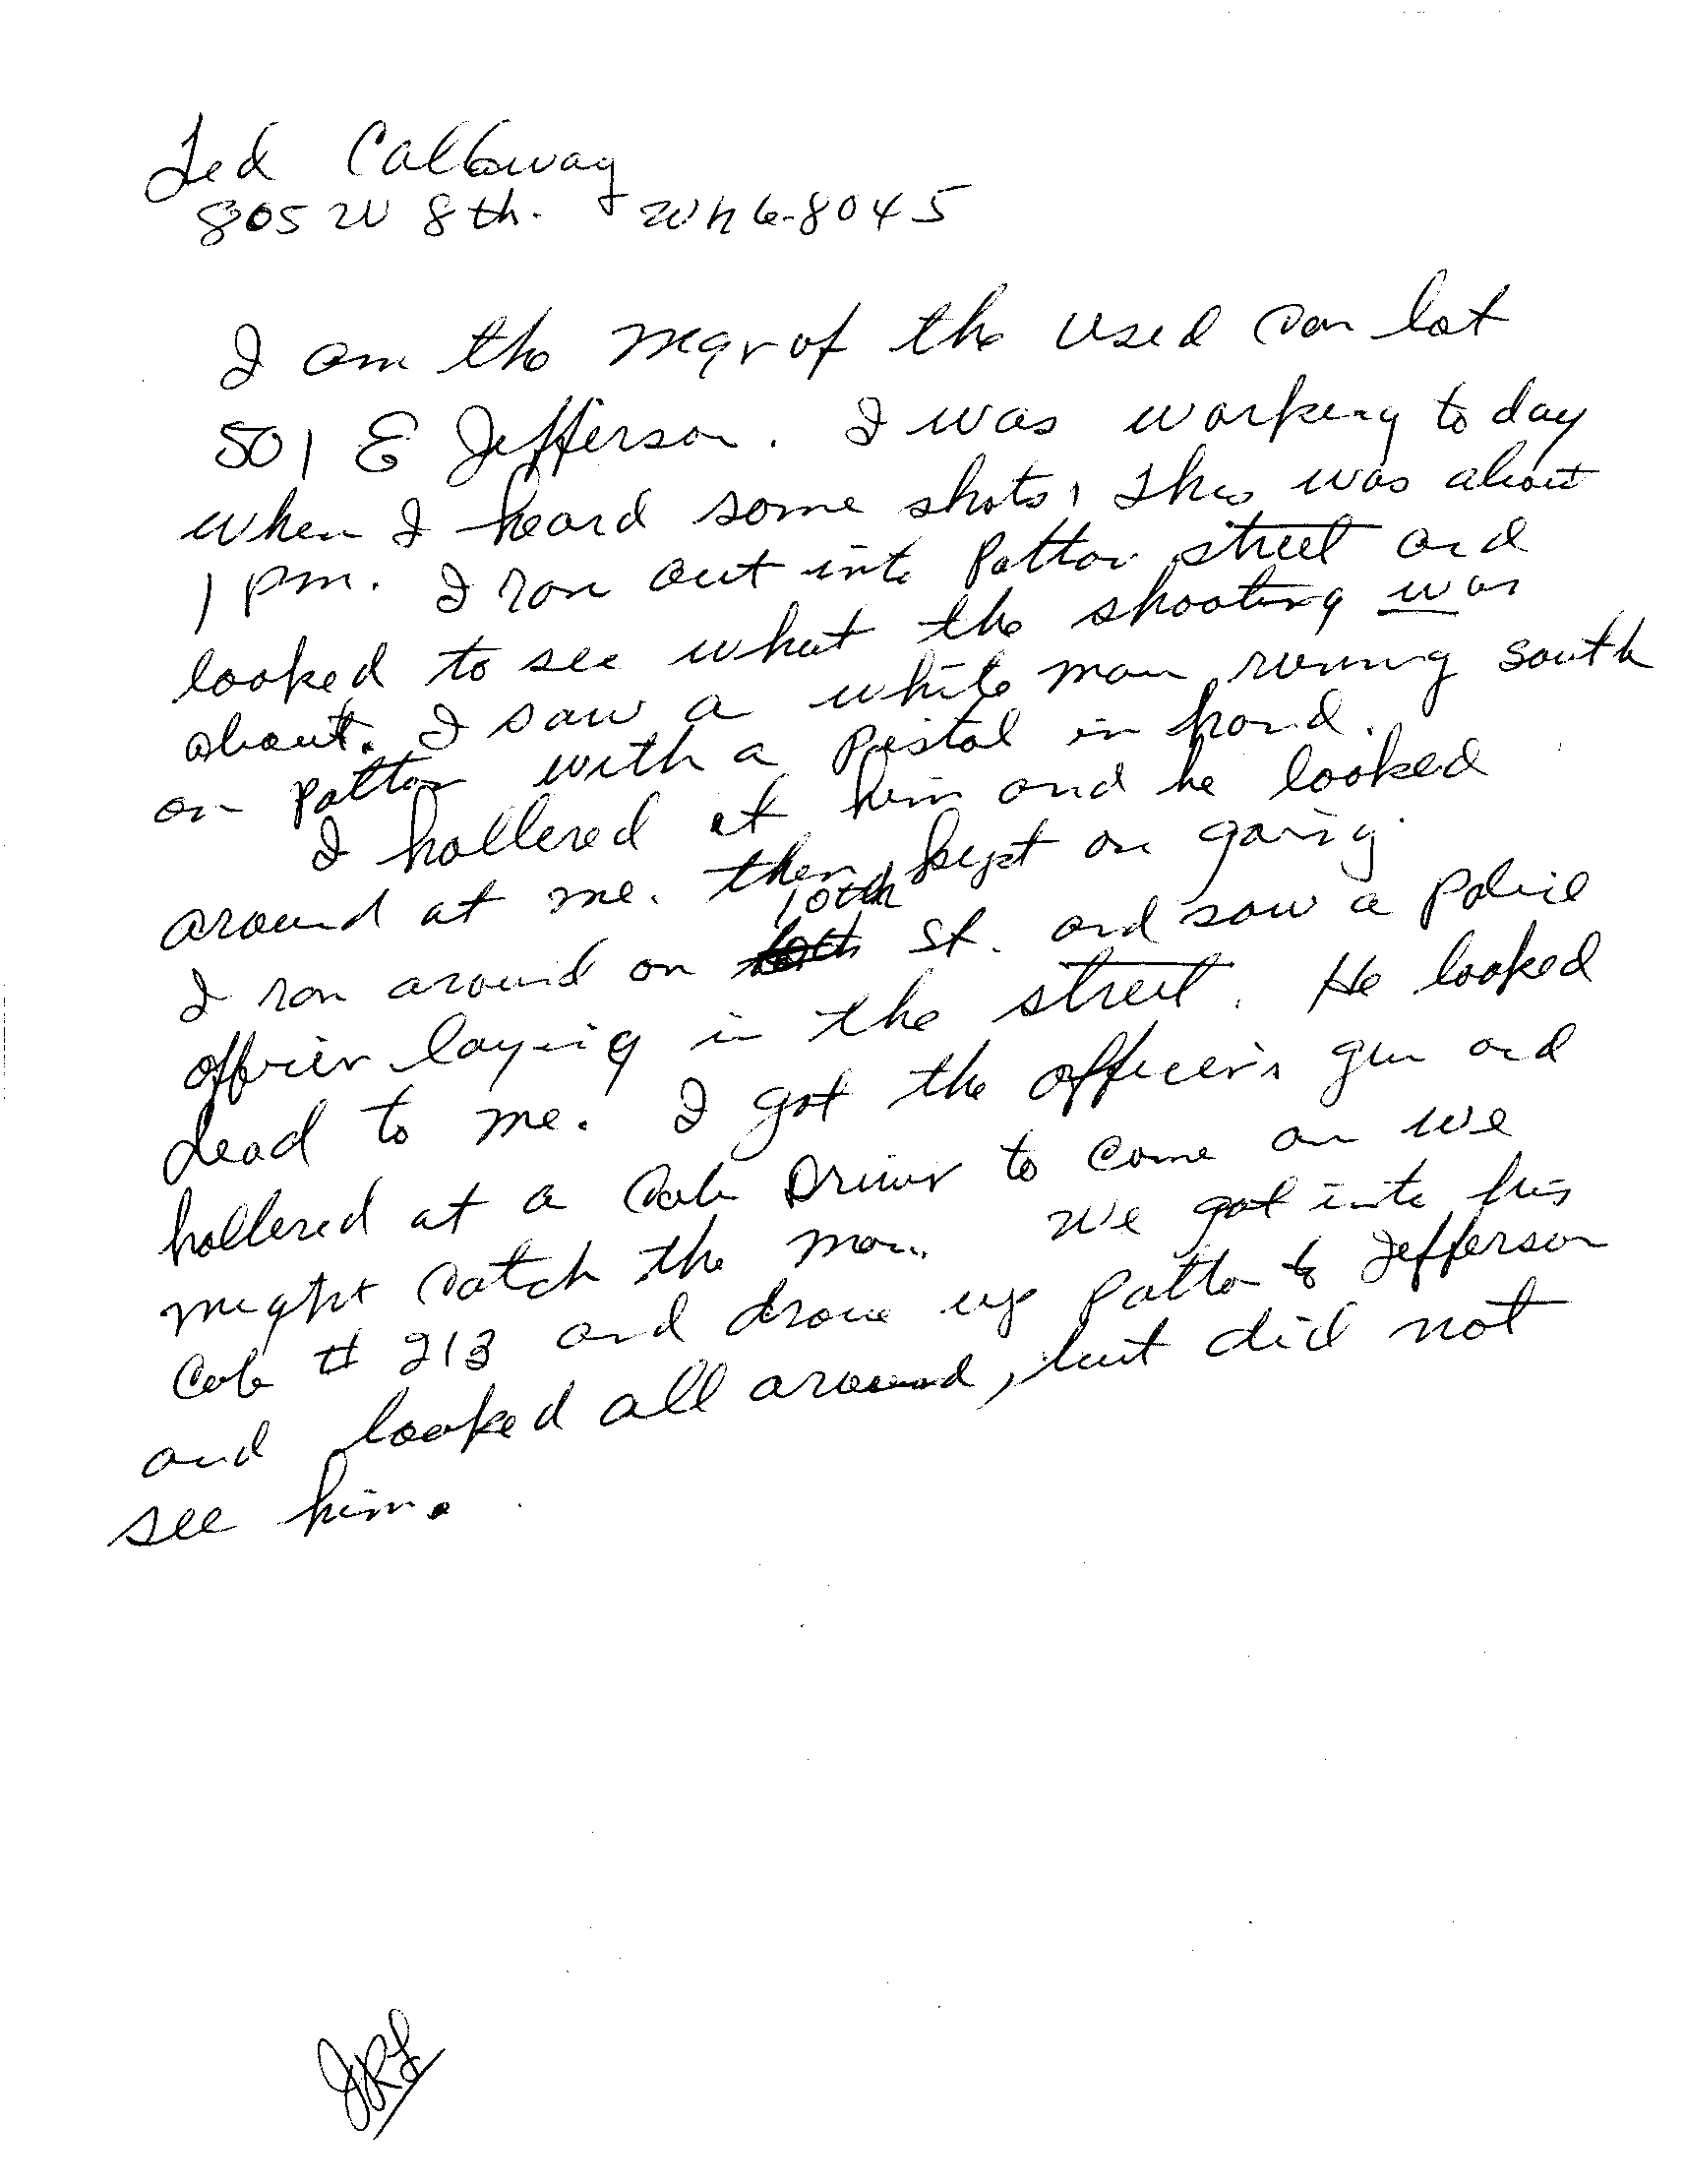 Ted Calloway
805 W 8th. Wh 6-8045
I am the Mgr of the used car lot
501 E Jefferson. I was working today
when I heard some shots, This was about
1 pm. I ran out into Patton street and
looked to see what the shooting was
about. I saw a white man running south
on patton with a pistol in hand.
I hollered at him and he looked
around at me. then kept on going.
I ran around on 10th St. and saw a police
officer laying in the street. He looked
dead to me. I got the officer's gun and
hollered at a Cab Driver to come on we
might catch the man. We got into his
Cab # 213 and drove up Patton to Jefferson
and looked all around, but did not
see him.
JRL